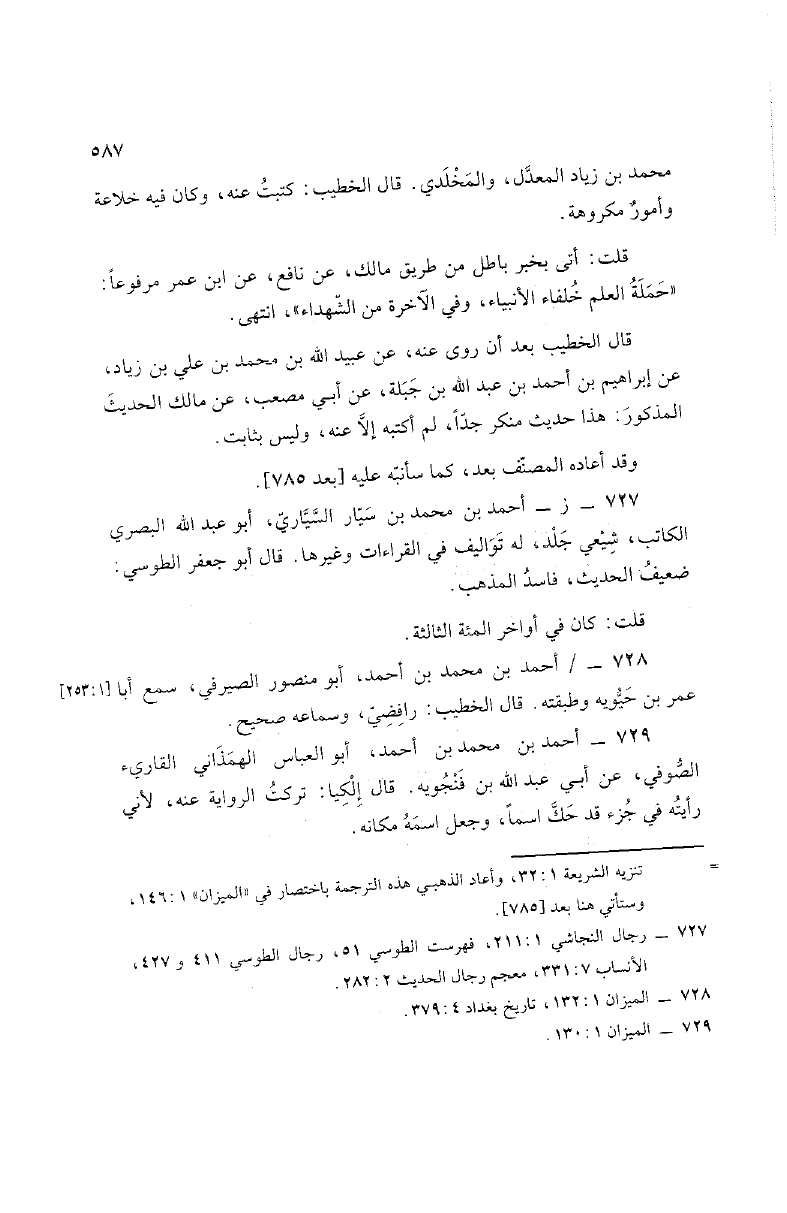 ٥٨٧
محمد بن زياد المعدَّل، والمَخْلَدي. قال الخطيب: كتبتُ عنه، وكان فيه خلاعة
وأمورٌ مكروهة.
قلت: أتى بخبر باطل من طريق مالك، عن نافع، عن ابن عمر مرفوعاً:
«حَمَلَةُ العلم خُلفاء الأنبياء، وفي الآخرة من الشّهداء»، انتهى.
قال الخطيب بعد أن روى عنه، عن عبيد الله بن محمد بن علي بن زياد،
عن إبراهيم بن أحمد بن عبد الله بن جَبَلة، عن أبـي مصعب، عن مالك الحديثَ
المذكورَ: هذا حديث منكر جدّاً، لم أكتبه إلاَّ عنه، وليس بثابت.
وقد أعاده المصنّف بعد، كما سأنبّه عليه [بعد ٧٨٥].
٧٢٧ ــ ز ــ أحمد بن محمد بن سَيّار السَّيَّاريّ، أبو عبد الله البصري
الكاتب، شِيْعي جَلْد، له تَوَاليف في القراءات وغيرها. قال أبو جعفر الطوسي:
ضعيفُ الحديث، فاسدُ المذهب.
قلت: كان في أواخر المئة الثالثة.
٧٢٨ ــ / أحمد بن محمد بن أحمد، أبو منصور الصيرفي، سمع أبا [٢٥٣:١]
عمر بن حَيُّويه وطبقته. قال الخطيب: رافِضِيّ، وسماعه صحيح.
٧٢٩ ــ أحمد بن محمد بن أحمد، أبو العباس الهمَذَاني القاريء
الصُّوفي، عن أبـي عبد الله بن فَنْجُويه. قال إلْكِيا: تركتُ الرواية عنه، لأني
رأيتُه في جُزء قد حَكَّ اسماً، وجعل اسمَهُ مكانه.
= تنزيه الشريعة ١:٣٢، وأعاد الذهبـي هذه الترجمة باختصار في «الميزان» ١:١٤٦،
وستأتي هنا بعد [٧٨٥].
٧٢٧ ــ رجال النجاشي ١:٢١١، فهرست الطوسي ٥١، رجال الطوسي ٤١١ و ٤٢٧،
الأنساب ٧:٣٣١، معجم رجال الحديث ٢:٢٨٢.
٧٢٨ ــ الميزان ١:١٣٢، تاريخ بغداد ٤:٣٧٩.
٧٢٩ ــ الميزان ١:١٣٠.